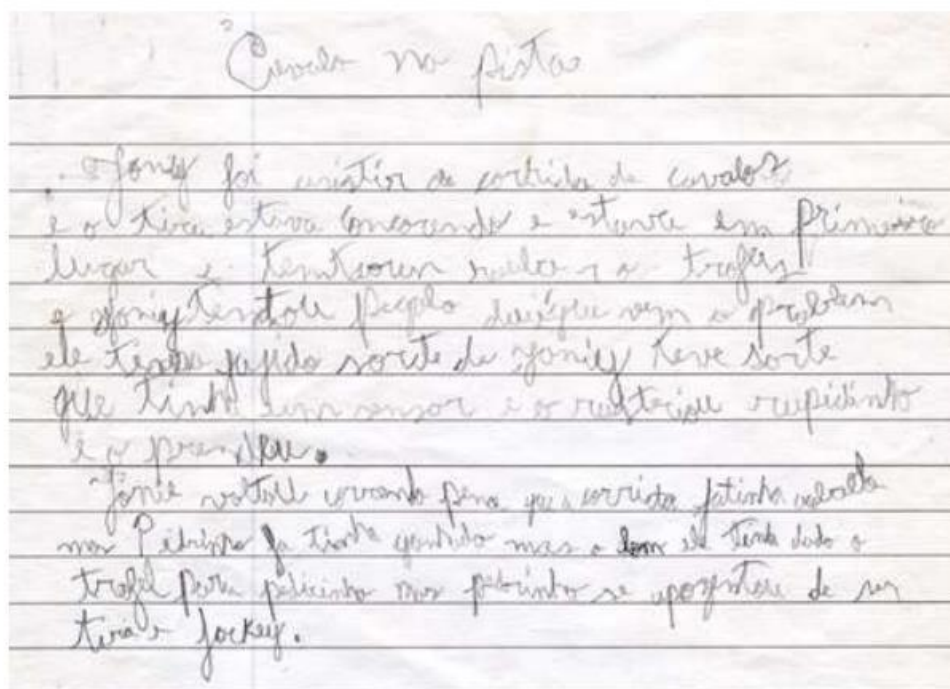 Cavalo na pista
Joniy foi asistir a corrida de cavalos
e o tira estava concorendo e estava em primeiro
lugar e tentaram o trofeu
e Joniy tentou que vem o problem
ele fujido sorte de Joniy teve sorte
que tinha um sensor e o rapidinho
e o prendeu.
Jonie voltou correndo pena que a corrida jatinha
mas Pedrinho ja tinha ganhado mas o bom ele tinha dado o
trofil para pedrinho mas pedrinho se de ser
tira e jockey.